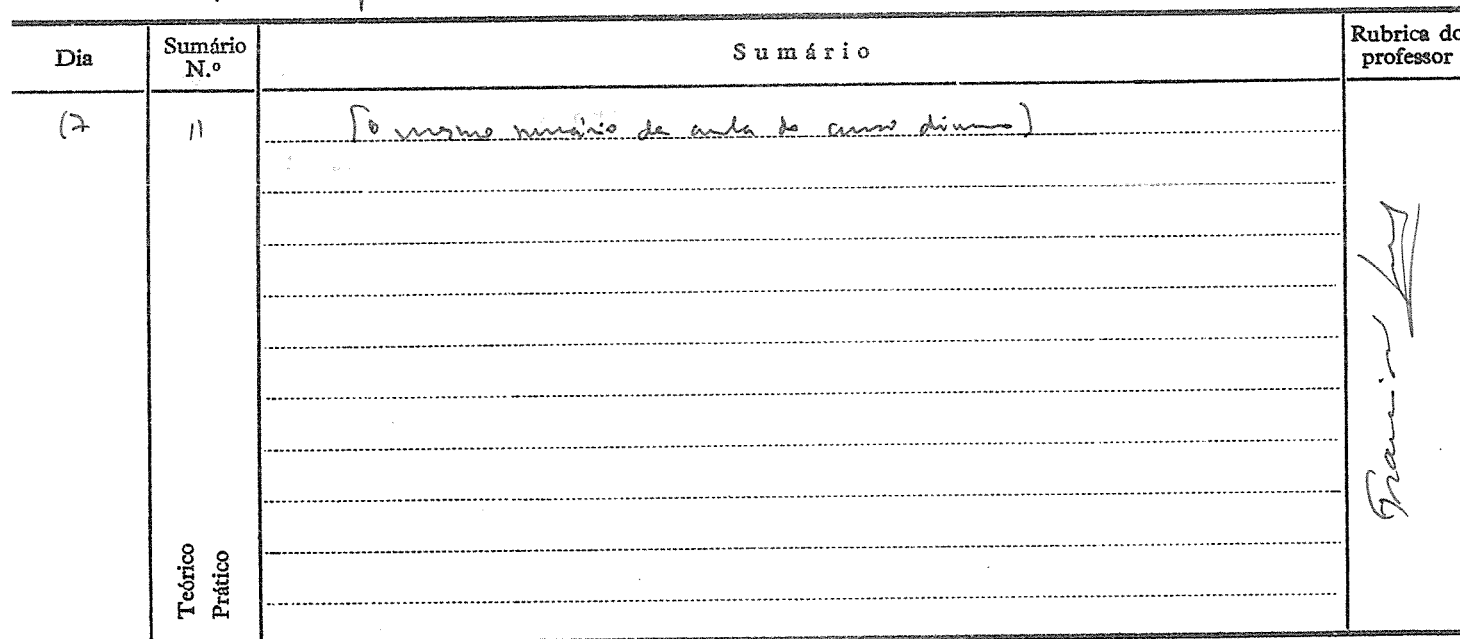 Dia
Sumário N.º
Sumário
Rubrica do professor
17
11
[o mesmo sumário da aula do curso diurno]
Teórico
Prático